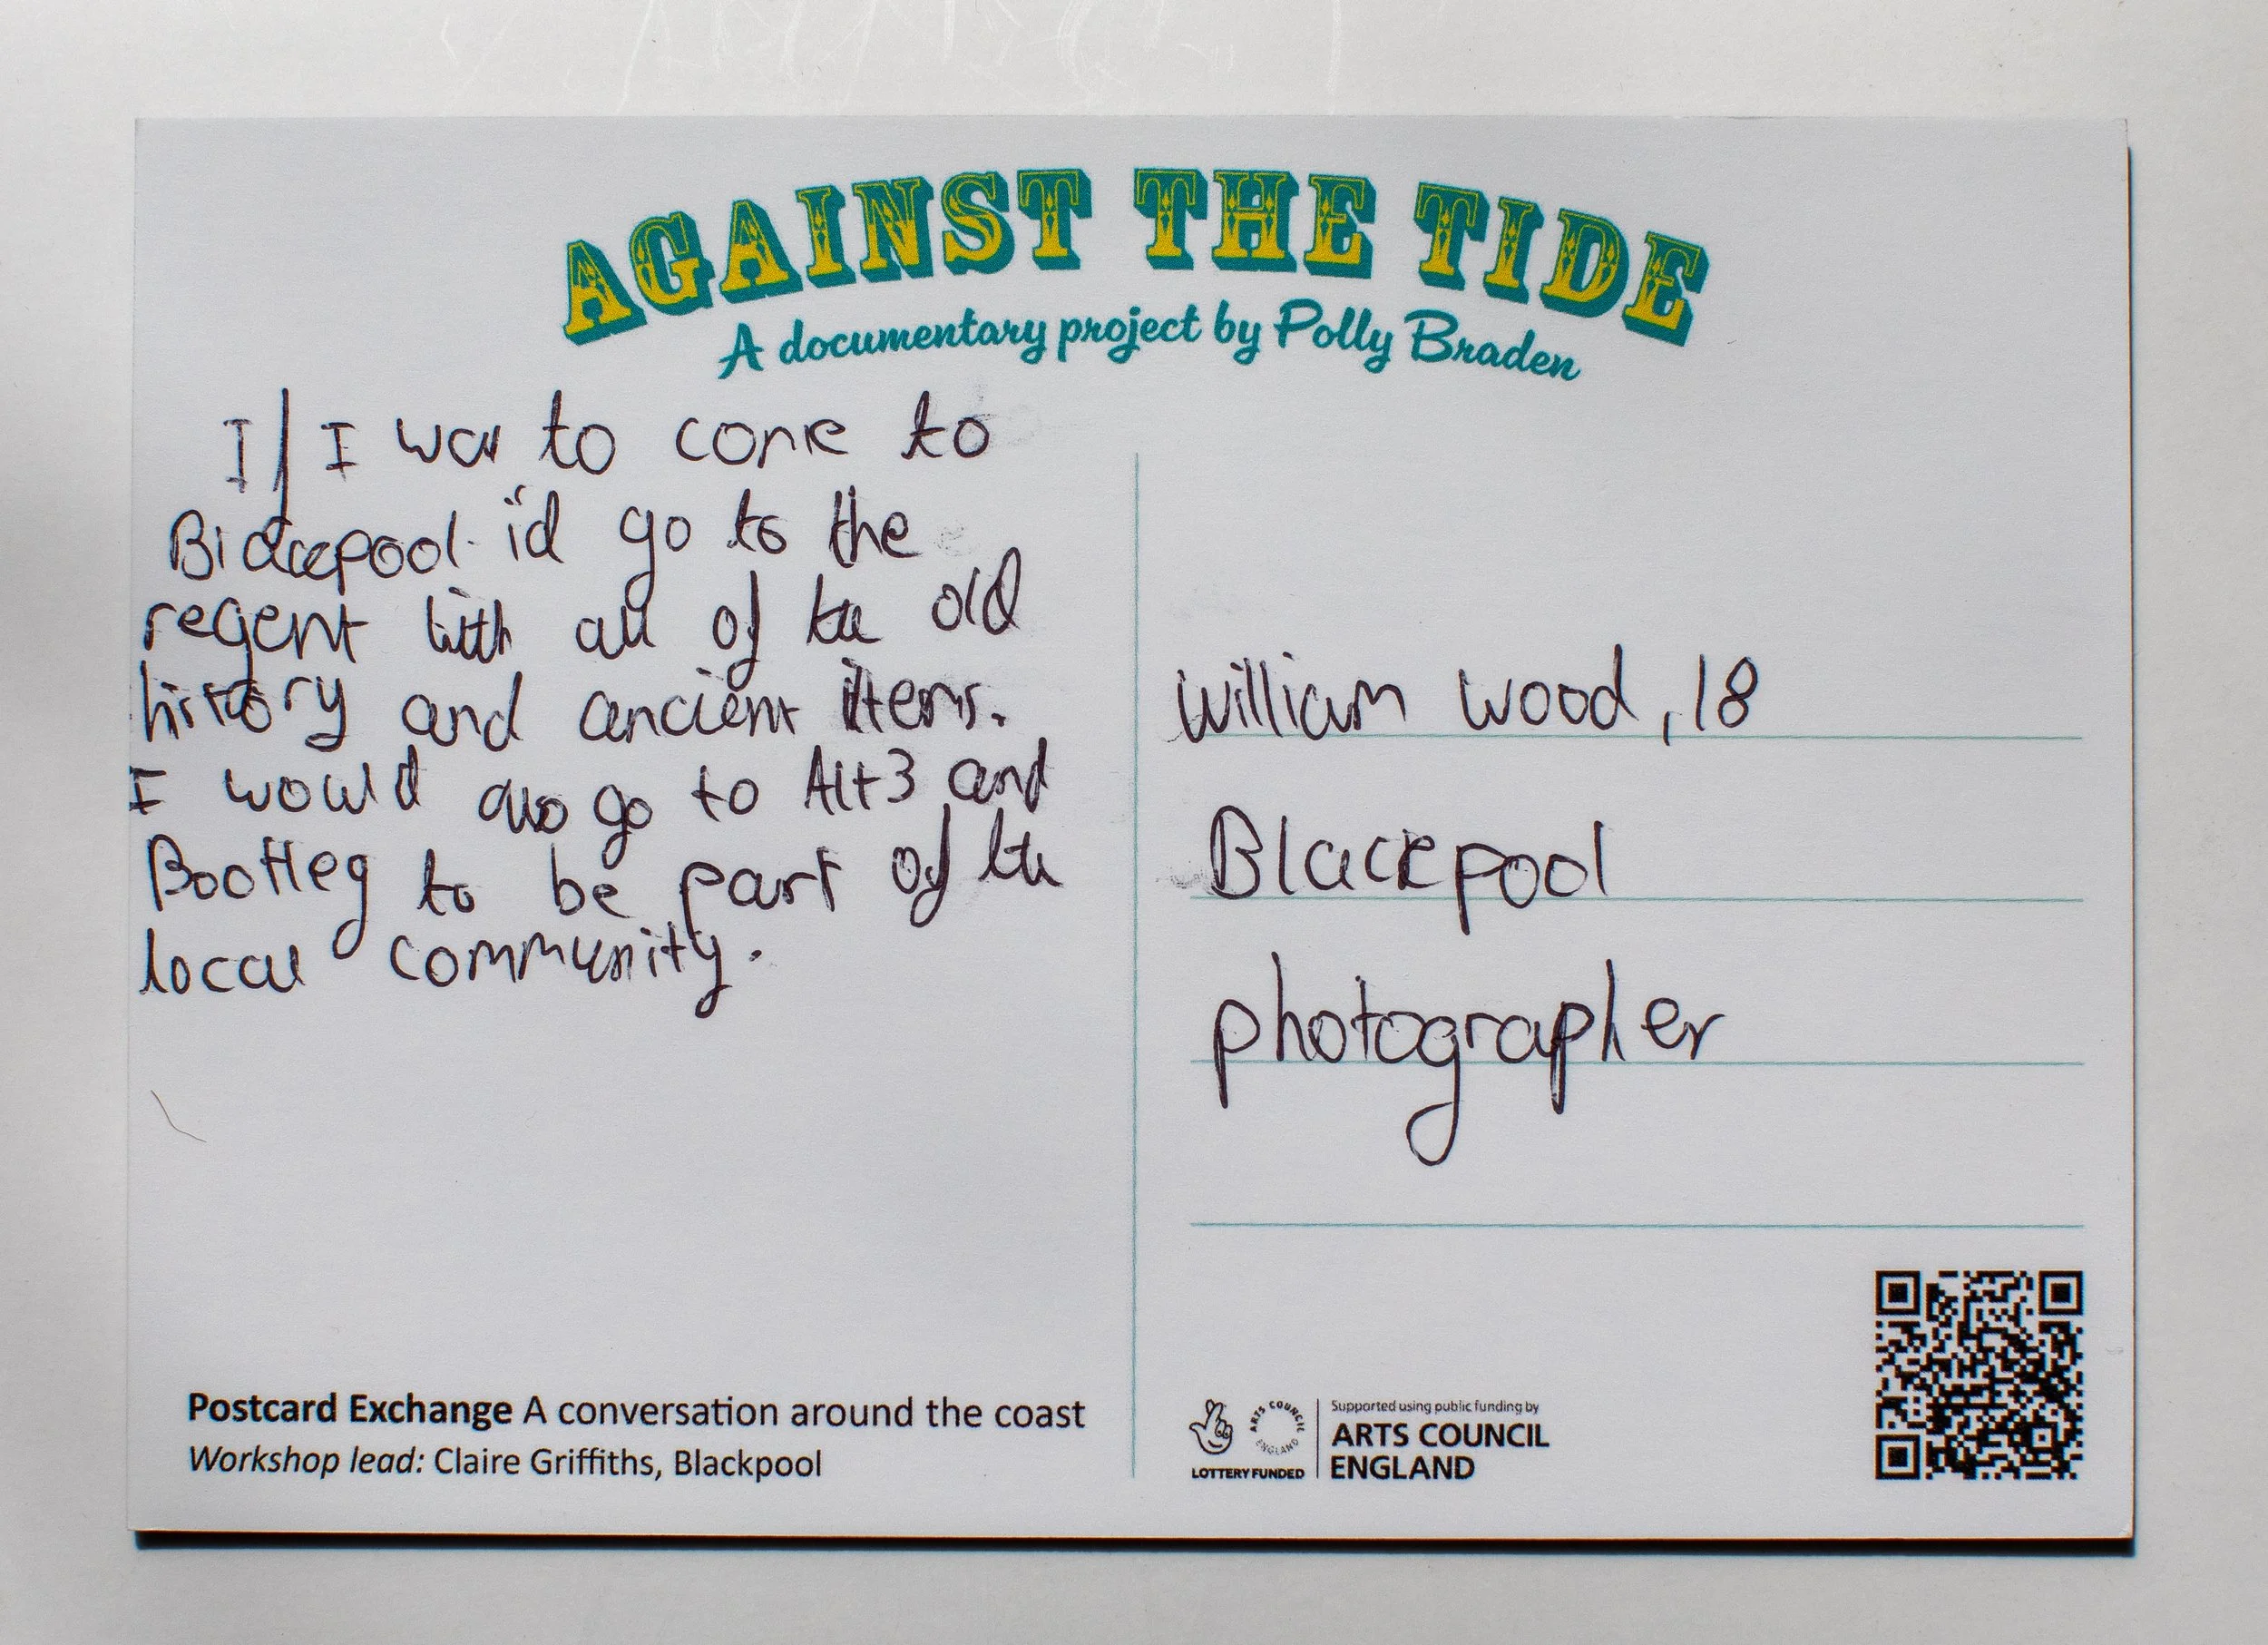 AGAINST THE TIDE
A documentary project by Polly Braden
If I was to come to
Blackpool i'd go to the
regent with all of the old
history and ancient items.
I would also go to Alt3 and
Bootleg to be part of the
local community.
William Wood, 18
Blackpool
photographer
Postcard Exchange A conversation around the coast
Workshop lead: Claire Griffiths, Blackpool
ARTS COUNCIL ENGLAND
LOTTERY FUNDED
Supported using public funding by
ARTS COUNCIL
ENGLAND